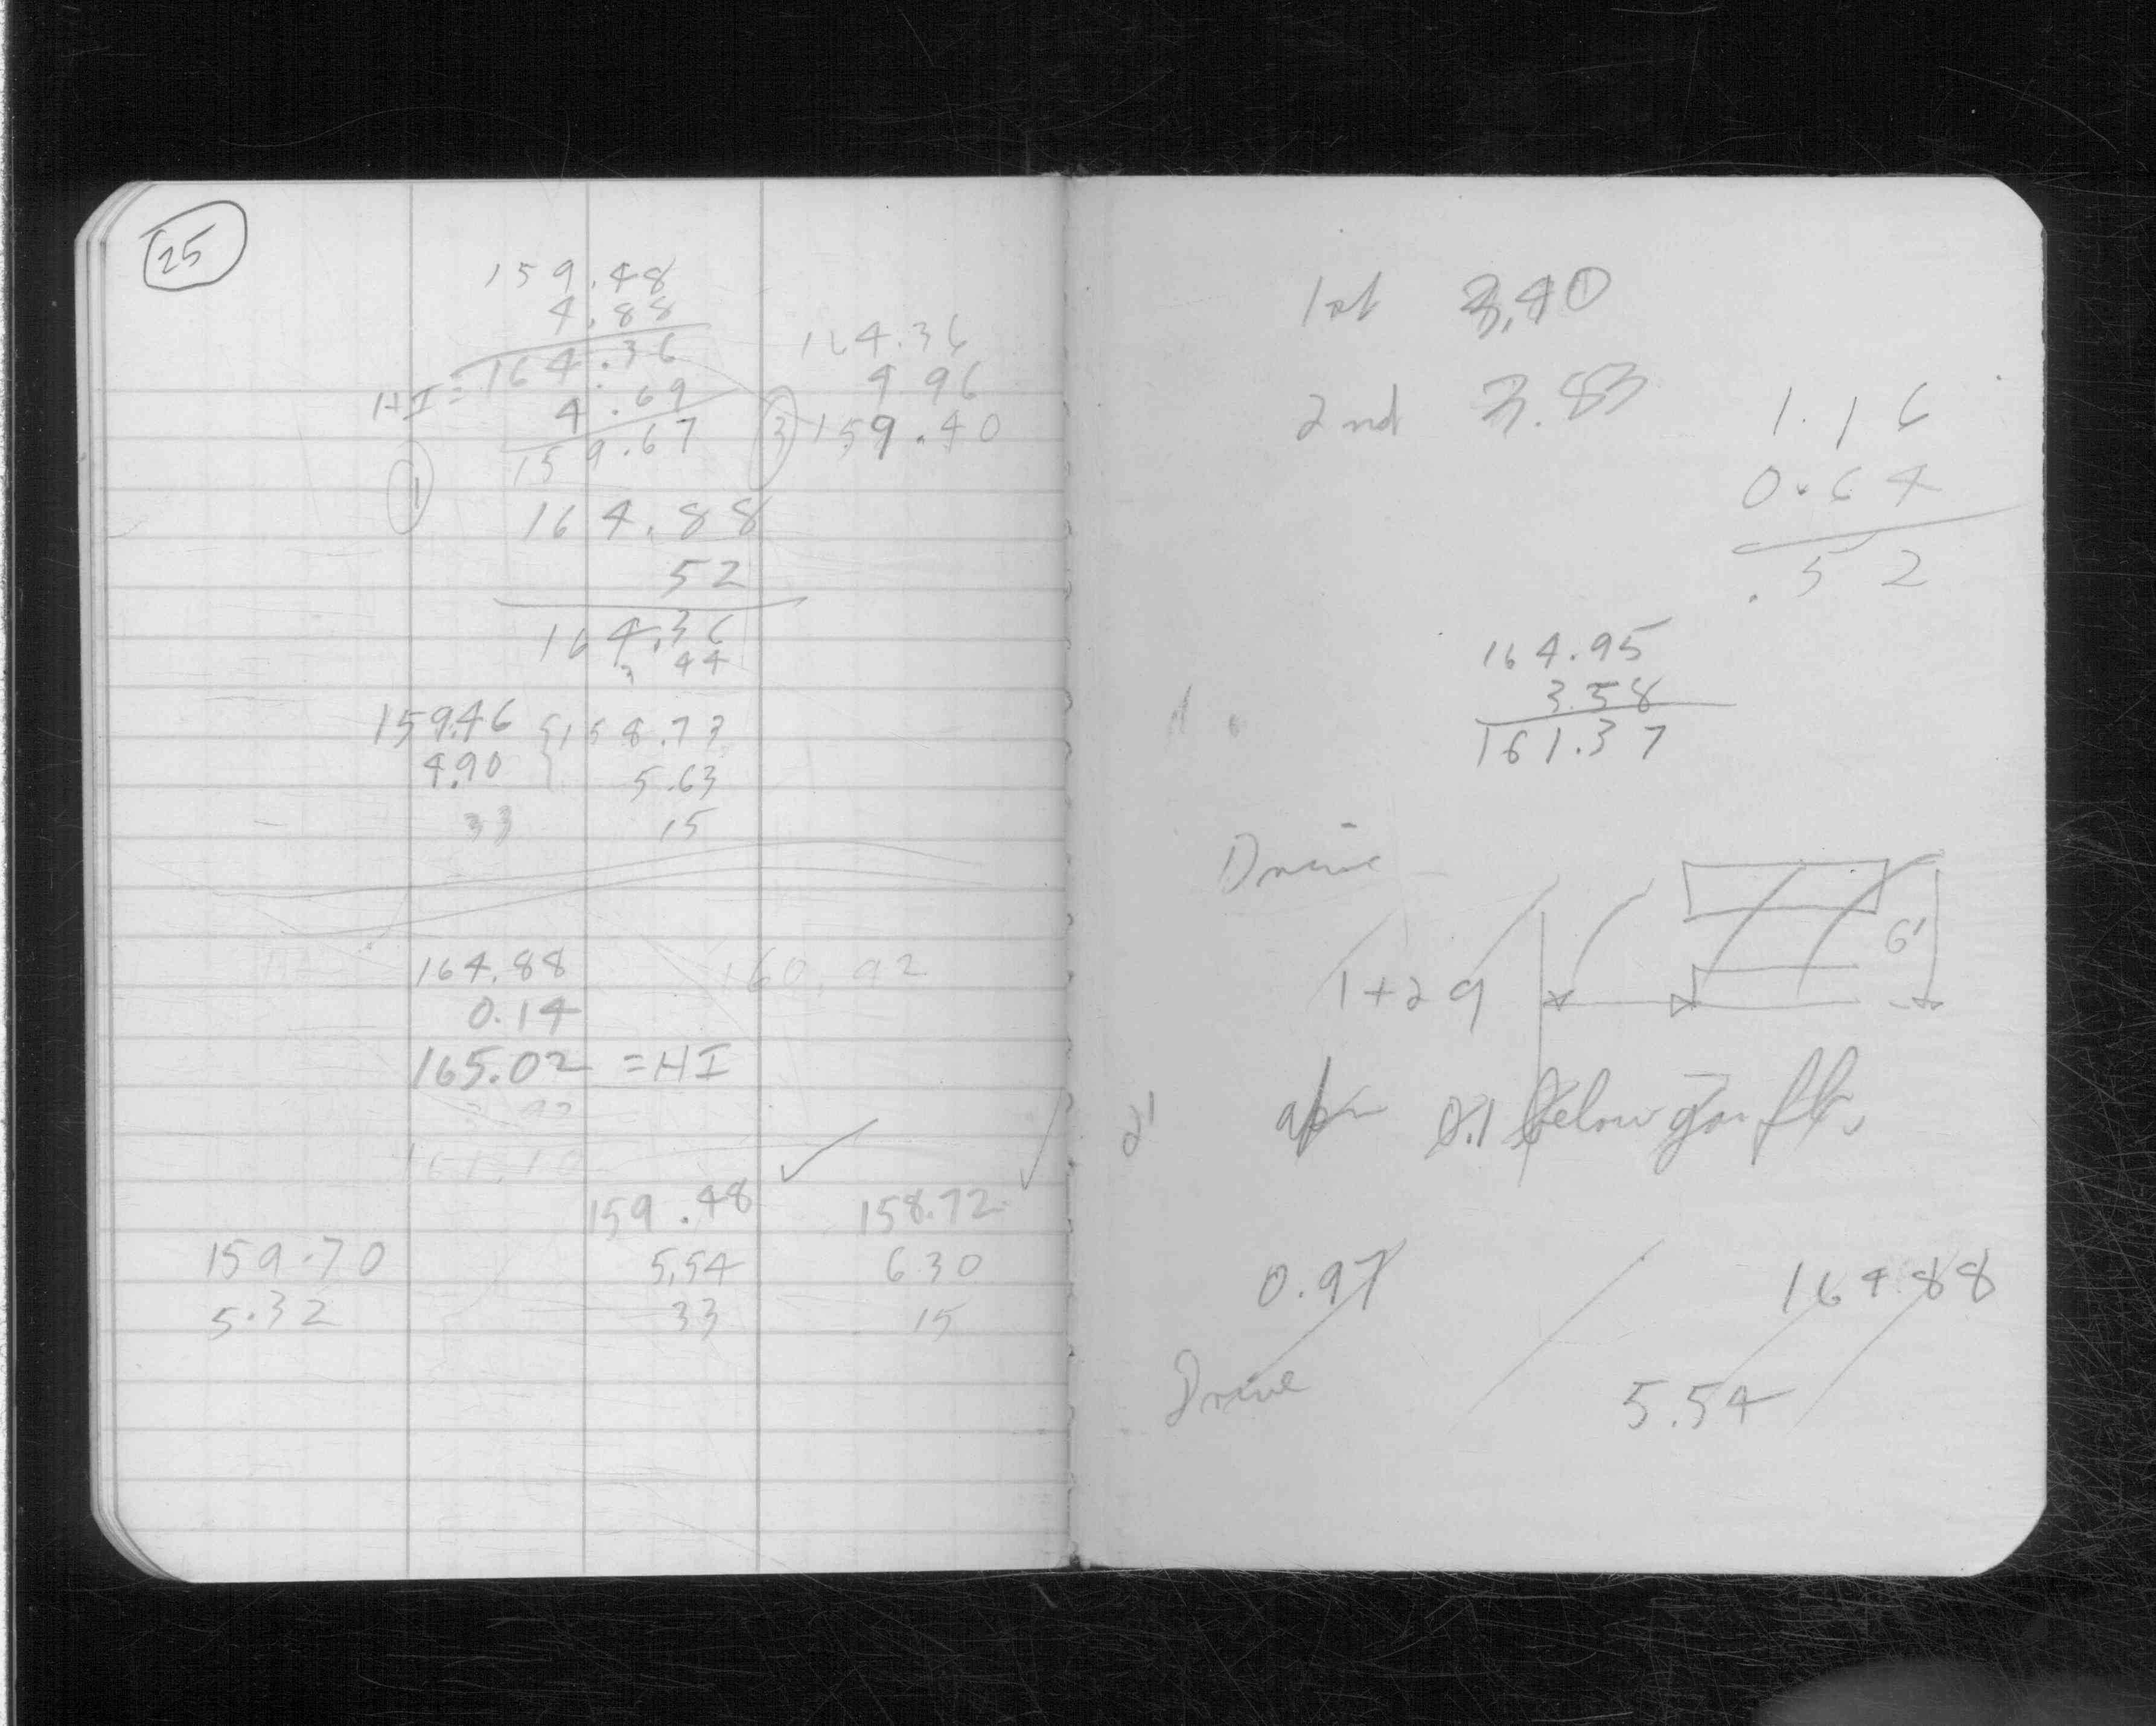 25
159.48
4.88
HI = 164.36
4.69
① 159.67
164.36
4.96
③ 159.40
164.88
52
164.36
44
159.46 { 158.73
4.90 5.63
33 15
164.88
0.14
165.02 = HI
160.92
159.48 ✓ 158.72
159.70 5.54 6.30
5.32 33 15
1st 3.40
2nd 3.83
1.16
0.64
.52
164.95
3.58
161.37
Drive
6'
1+29
0.1 below gar fl.
0.97 164.88
Drive 5.54